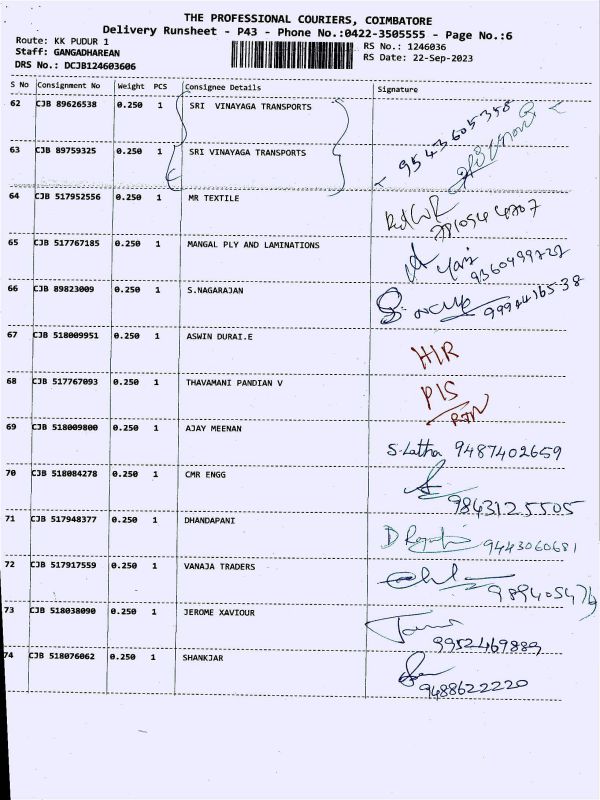 THE PROFESSIONAL COURIERS, COIMBATORE
Delivery Runsheet - P43 - Phone No.:0422-3505555 - Page No.:6
Route: KK PUDUR 1
RS No.: 1246036
Staff: GANGADHAREAN
RS Date: 22-Sep-2023
DRS No.: DCJB124603606
S No Consignment No Weight PCS Consignee Details Signature
62 CJB 89626538 0.250 1 SRI VINAYAGA TRANSPORTS
9543605358
63 CJB 89759325 0.250 1 SRI VINAYAGA TRANSPORTS
64 CJB 517952556 0.250 1 MR TEXTILE
65 CJB 517767185 0.250 1 MANGAL PLY AND LAMINATIONS
66 CJB 89823009 0.250 1 S.NAGARAJAN
67 CJB 518009951 0.250 1 ASWIN DURAI.E
68 CJB 517767093 0.250 1 THAVAMANI PANDIAN V
69 CJB 518009800 0.250 1 AJAY MEENAN
S.Latha 9487402659
70 CJB 518084278 0.250 1 CMR ENGG
9843125505
71 CJB 517948377 0.250 1 DHANDAPANI
9443060681
72 CJB 517917559 0.250 1 VANAJA TRADERS
73 CJB 518038090 0.250 1 JEROME XAVIOUR
9952469889
74 CJB 518076062 0.250 1 SHANKJAR
9488622220